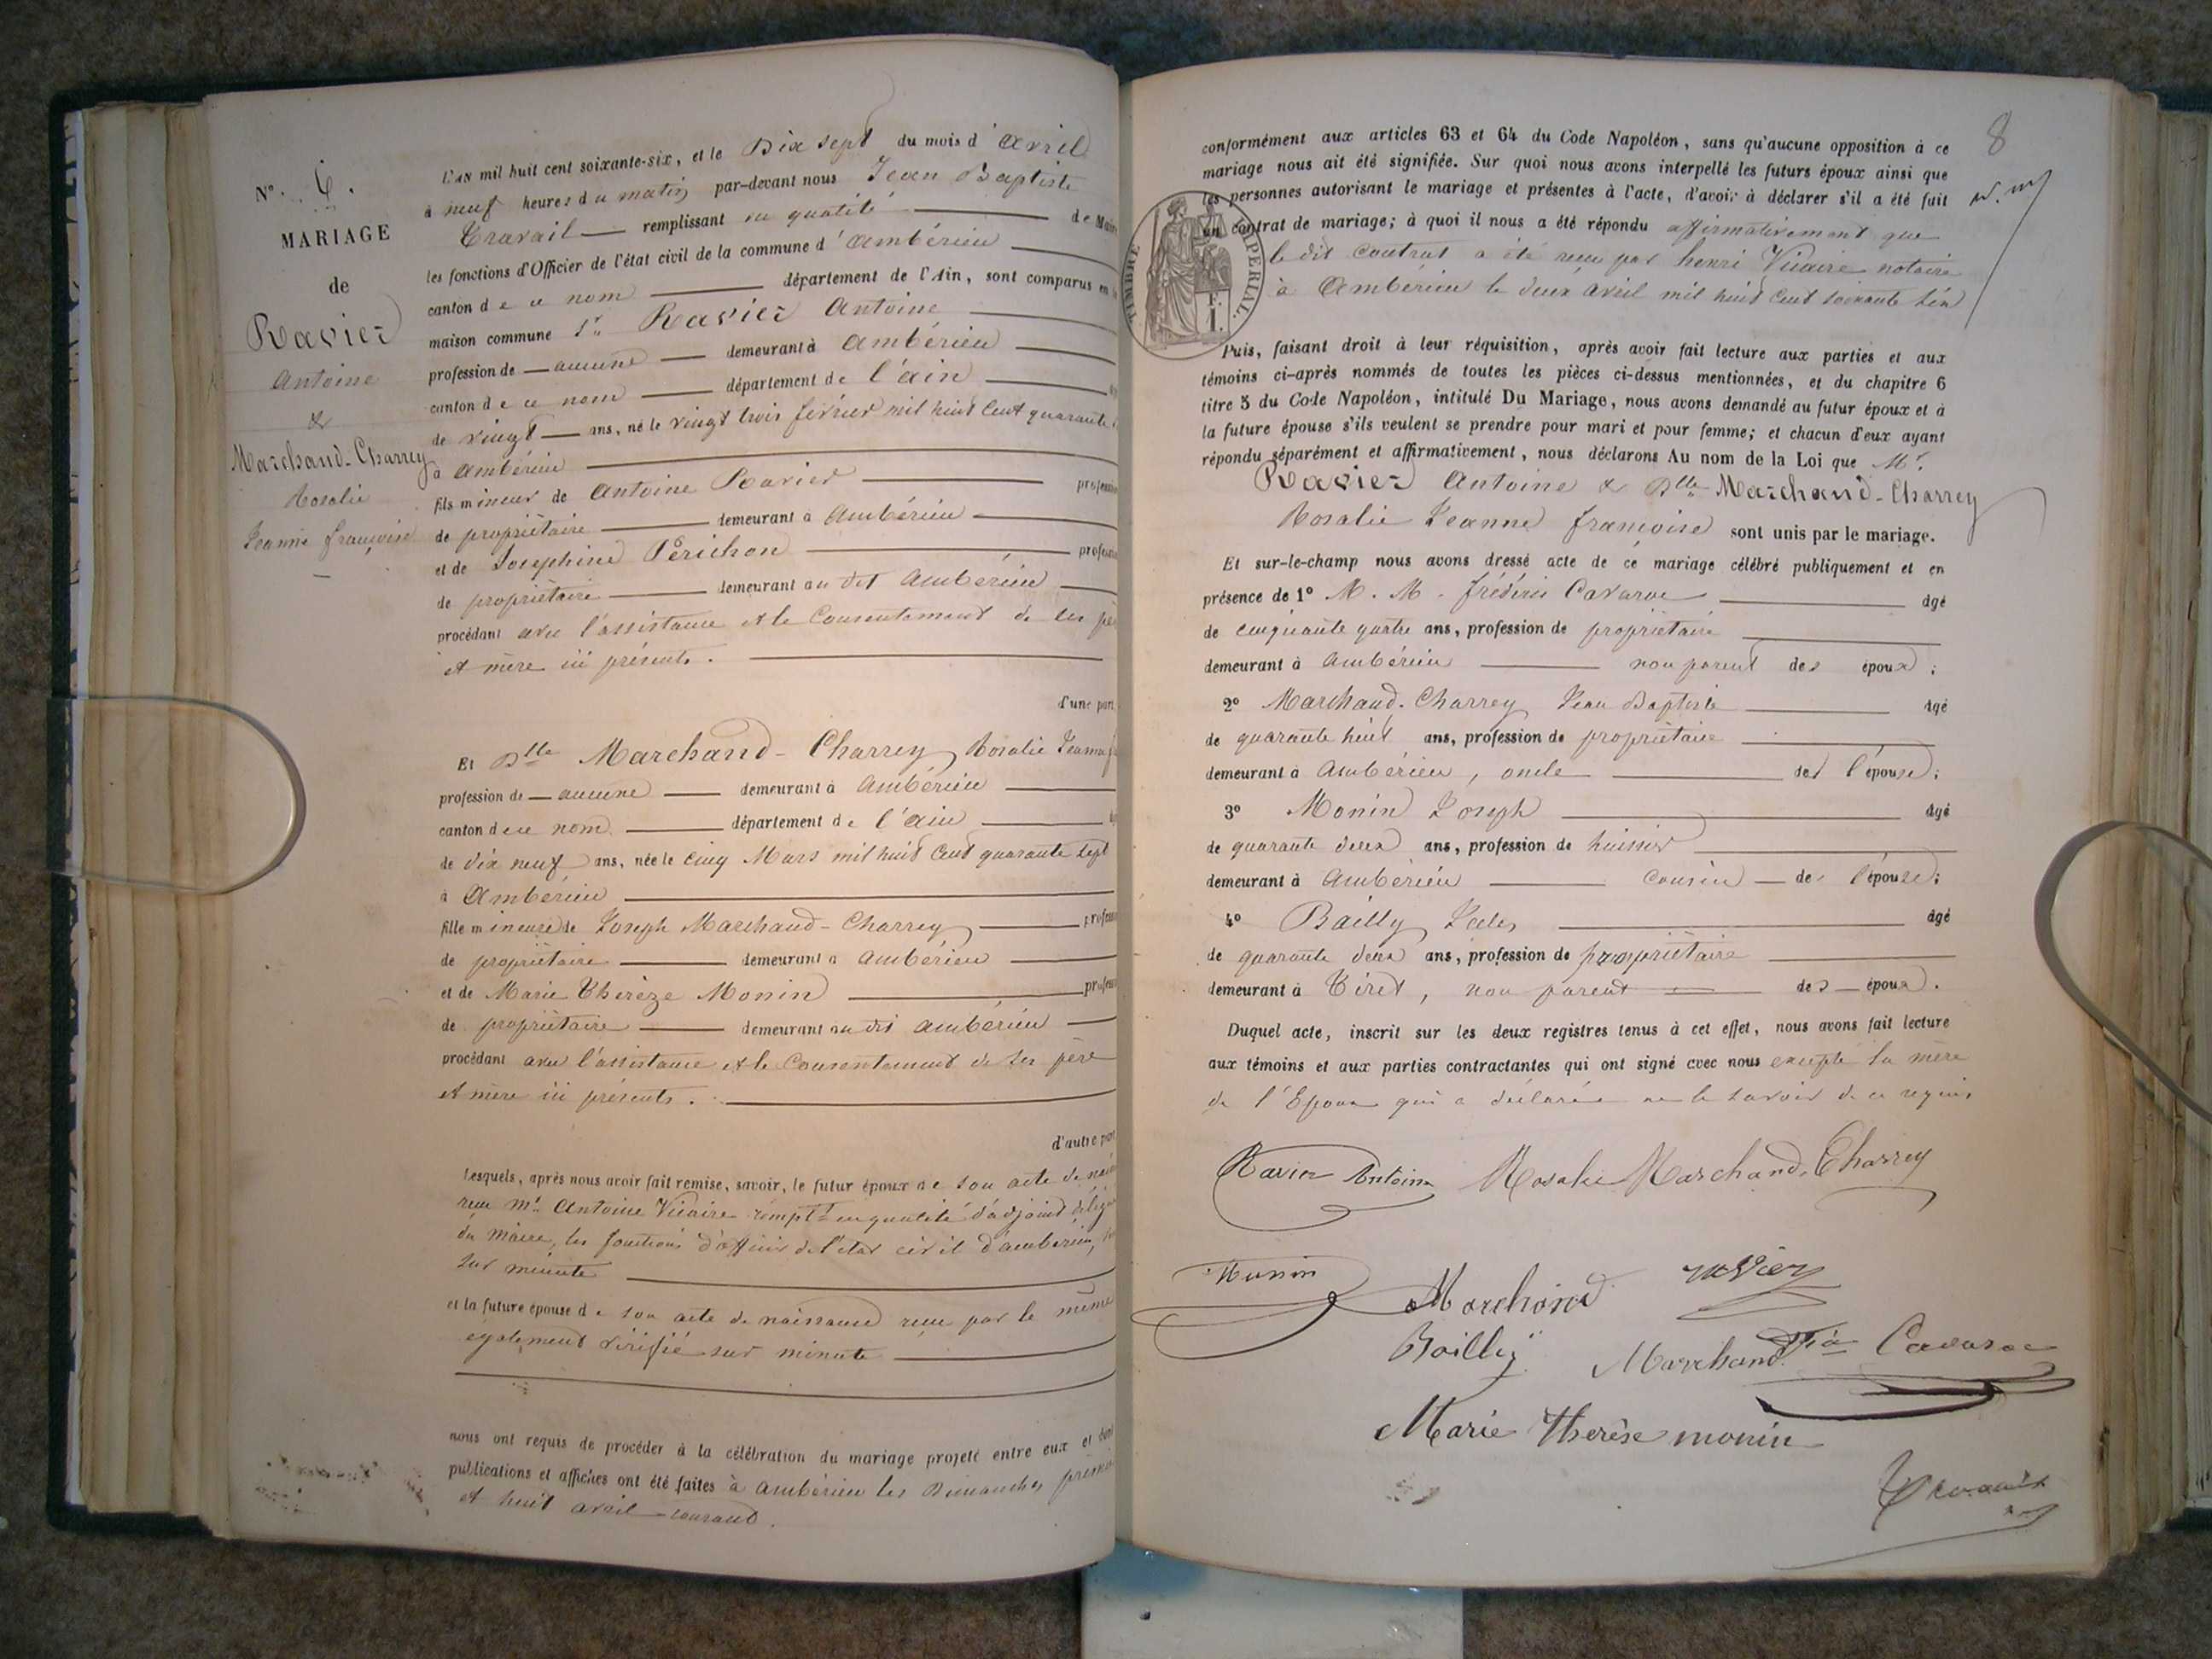 N°. 6.
MARIAGE
de
Ravier
Antoine
&
Marchand-Charrey
Rosalie
Jeanne françoise
L'AN mil huit cent soixante-six, et le Dix sept du mois d'avril
à neuf heures du matin par-devant nous Jean Baptiste
Travail remplissant en qualité de Maire
les fonctions d'Officier de l'état civil de la commune d'ambérieu
canton de ce nom département de l'Ain, sont comparus en
maison commune Sr Ravier Antoine
profession de aucune demeurant à ambérieu
canton de ce nom département de l'ain
de vingt ans, né le vingt trois février mil huit cent quarante
à ambérieu
fils mineur de Antoine Ravier profession
de propriétaire demeurant à ambérieu
et de Josephine Périchon profession
de propriétaire demeurant au dit ambérieu
procédant avec l'assistance et le consentement de ses père
et mère ici présents.
d'une part
Et Dlle Marchand-Charrey Rosalie Jeanne
profession de aucune demeurant à ambérieu
canton de ce nom département de l'ain
de dix neuf ans, née le cinq Mars mil huit cent quarante sept
à ambérieu
fille mineure de Joseph Marchand-Charrey profession
de propriétaire demeurant à ambérieu
et de Marie Thérèze Monin profession
de propriétaire demeurant au dit ambérieu
procédant avec l'assistance et le consentement de ses père
et mère ici présents.
d'autre part
Lesquels, après nous avoir fait remise, savoir, le futur époux de son acte de
reçu Mr Antoine Vicaire rempt en qualité d'adjoint
du maire, les fonctions d'officier de l'état civil d'ambérieu,
sur minute
et la future épouse de son acte de naissance reçu par le même
également vérifié sur minute
nous ont requis de procéder à la célébration du mariage projeté entre eux et dont
publications et affiches ont été faites à ambérieu les Dimanches premier
et huit avril courant.
8
conformément aux articles 63 et 64 du Code Napoléon, sans qu'aucune opposition à ce
mariage nous ait été signifiée. Sur quoi nous avons interpellé les futurs époux ainsi que
les personnes autorisant le mariage et présentes à l'acte, d'avoir à déclarer s'il a été fait
un contrat de mariage; à quoi il nous a été répondu affirmativement que
le dit contrat a été reçu par henri Vicaire notaire
à Ambérieu le deux avril mil huit cent soixante six
TIMBRE IMPERIAL.
F.
I.
Puis, faisant droit à leur réquisition, après avoir fait lecture aux parties et aux
témoins ci-après nommés de toutes les pièces ci-dessus mentionnées, et du chapitre 6
titre 5 du Code Napoléon, intitulé Du Mariage, nous avons demandé au futur époux et à
la future épouse s'ils veulent se prendre pour mari et pour femme; et chacun d'eux ayant
répondu séparément et affirmativement, nous déclarons Au nom de la Loi que Mr.
Ravier Antoine & Dlle Marchand-Charrey
Rosalie Jeanne françoise sont unis par le mariage.
Et sur-le-champ nous avons dressé acte de ce mariage célébré publiquement et en
présence de 1° M. M. frédéric Cavaroc âgé
de cinquante quatre ans, profession de propriétaire
demeurant à ambérieu non parent des époux;
2° Marchand-Charrey Jean Baptiste âgé
de quarante huit ans, profession de propriétaire
demeurant à ambérieu, oncle de l'épouse;
3° Monin Joseph âgé
de quarante deux ans, profession de huissier
demeurant à ambérieu cousin de l'épouse;
4° Bailly Jules âgé
de quarante deux ans, profession de propriétaire
demeurant à Tiret, non parent des époux.
Duquel acte, inscrit sur les deux registres tenus à cet effet, nous avons fait lecture
aux témoins et aux parties contractantes qui ont signé avec nous excepté la mère
de l'Epoux qui a déclaré ne le savoir de ce requis
Ravier Antoine Rosalie Marchand-Charrey
Monin Marchand ravier
Bailly Marchand Cavaroc
Marie Therèse monin